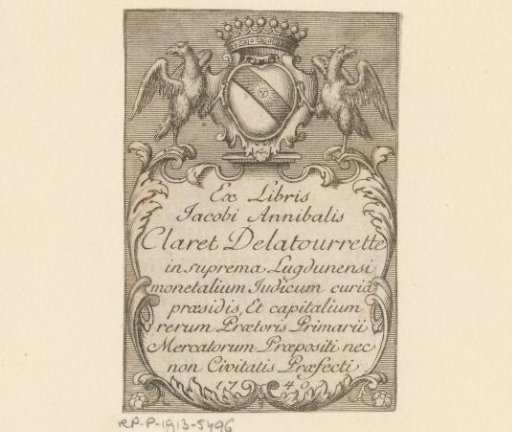 Ex Libris
Jacobi Annibalis
Claret Delatourrette
in suprema Lugdunensi
monetalium Judicum curia
præsidis, Et capitalium
rerum Prætoris Primarii
Mercatorum Præpositi nec
non Civitatis Præfecti
1740
RP-P-1913-5496